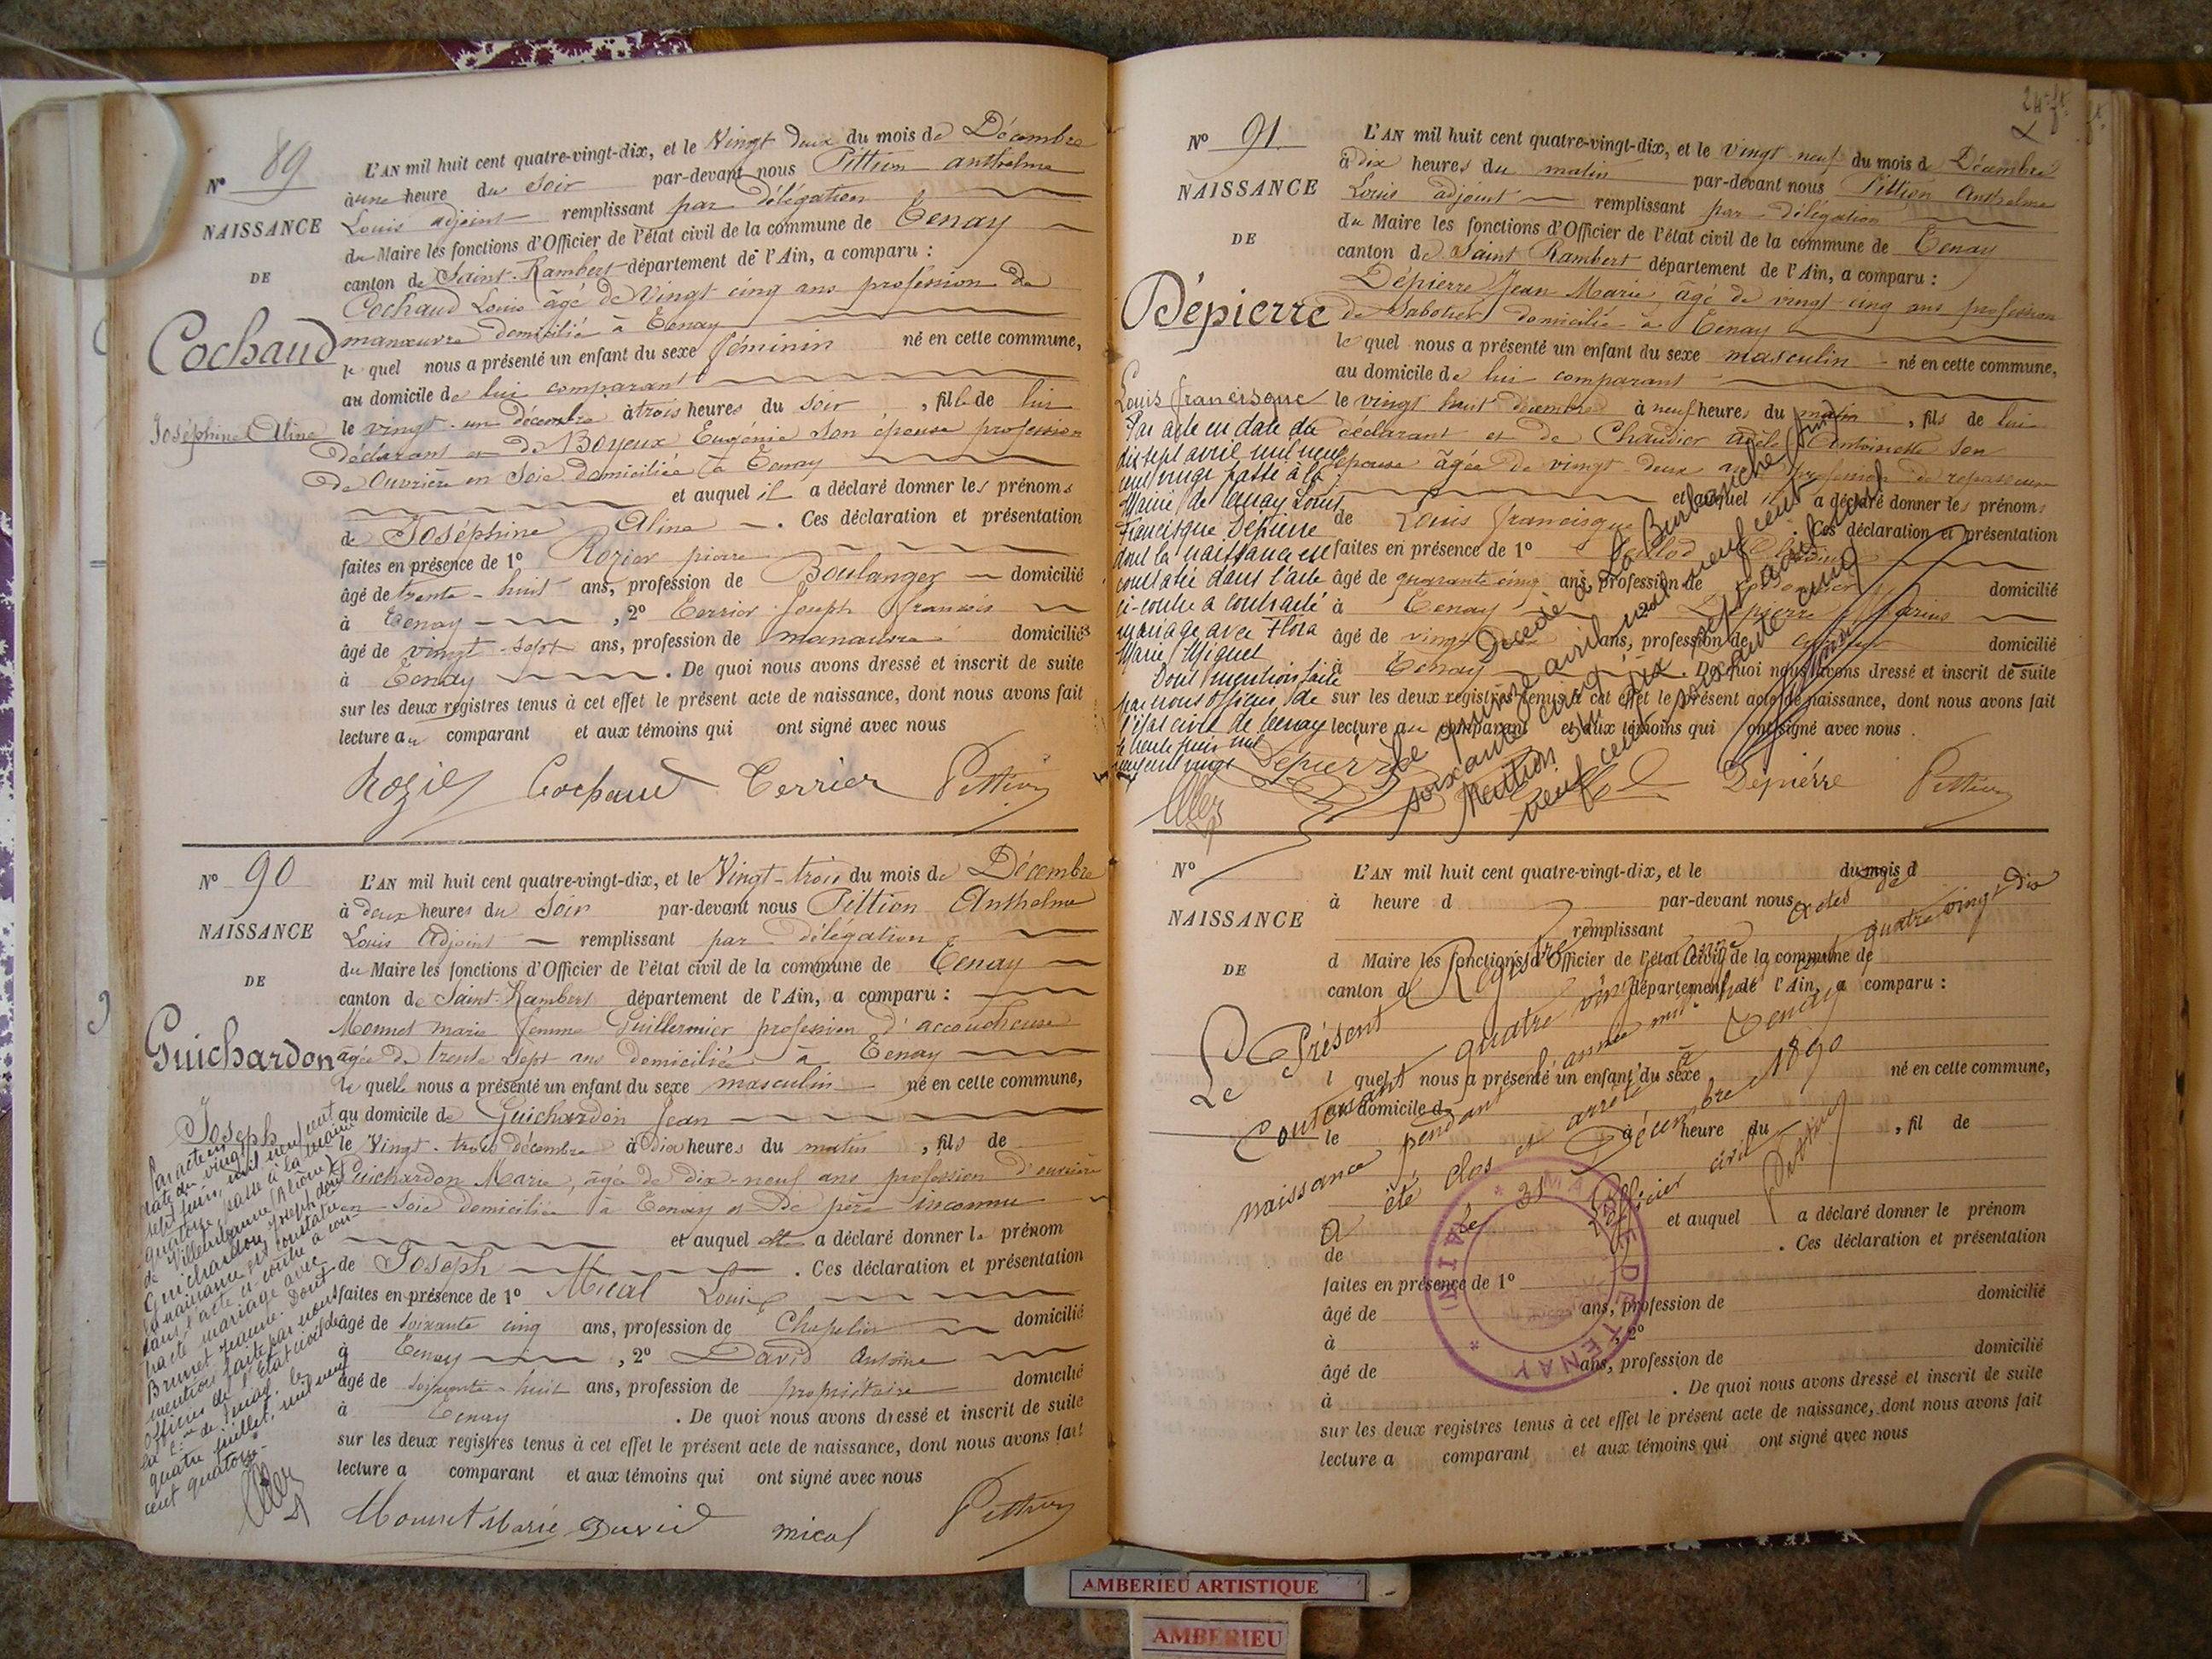 N° 89
NAISSANCE
DE
Cochaud
Joséphine Aline
L'AN mil huit cent quatre-vingt-dix, et le Vingt deux du mois de Décembre
à une heure du Soir par-devant nous Pittion anthelme
Louis adjoint remplissant par délégation
du Maire les fonctions d'Officier de l'état civil de la commune de Tenay
canton de Saint-Rambert département de l'Ain, a comparu :
Cochaud Louis âgé de Vingt cinq ans profession de
manœuvre domicilié à Tenay
lequel nous a présenté un enfant du sexe féminin né en cette commune,
au domicile de lui comparant
le vingt-un décembre à trois heures du soir, fille de lui
déclarant et de Boyeux Eugénie son épouse profession
de Ouvrière en Soie domiciliée à Tenay
et auquel il a déclaré donner les prénoms
de Joséphine Aline. Ces déclaration et présentation
faites en présence de 1° Rozier pierre
âgé de trente-huit ans, profession de Boulanger domicilié
à Tenay, 2° Terrier Joseph François
âgé de vingt-sept ans, profession de manœuvre domiciliés
à Tenay. De quoi nous avons dressé et inscrit de suite
sur les deux registres tenus à cet effet le présent acte de naissance, dont nous avons fait
lecture au comparant et aux témoins qui ont signé avec nous
Rozier Cochaud Terrier Pittion
N° 90
NAISSANCE
DE
Guichardon
Joseph
L'AN mil huit cent quatre-vingt-dix, et le Vingt-trois du mois de Décembre
à deux heures du Soir par-devant nous Pittion Anthelme
Louis Adjoint remplissant par délégation
du Maire les fonctions d'Officier de l'état civil de la commune de Tenay
canton de Saint-Rambert département de l'Ain, a comparu :
Monnet marie femme Guillermier profession d'accoucheuse
âgée de trente sept ans domiciliée à Tenay
laquelle nous a présenté un enfant du sexe masculin né en cette commune,
au domicile de Guichardon Jean
le Vingt-trois décembre à dix heures du matin, fils de
Guichardon Marie, âgée de dix-neuf ans profession d'ouvrière
en Soie domiciliée à Tenay et De père inconnu
et auquel elle a déclaré donner le prénom
de Joseph. Ces déclaration et présentation
faites en présence de 1° Mical Louis
âgé de soixante cinq ans, profession de Chapelier domicilié
à Tenay, 2° David Antoine
âgé de soixante-huit ans, profession de propriétaire domicilié
à Tenay. De quoi nous avons dressé et inscrit de suite
sur les deux registres tenus à cet effet le présent acte de naissance, dont nous avons fait
lecture a comparant et aux témoins qui ont signé avec nous
Par acte en
date du vingt
sept juin, mil neuf cent
quatorze, passé à la mairie
de Villeurbanne (Rhône)
Guichardon Joseph dont
la naissance est constatée
dans l'acte ci-contre a con-
tracté mariage avec
Brunet Jeanne. Dont
mention faite par nous
officier de l'Etat civil de
la Cne de Tenay, le
quatre juillet, mil neuf
cent quatorze.
Monnet Marie David mical Pittion
N° 91.
NAISSANCE
DE
Dépierre
Louis Francisque
L'AN mil huit cent quatre-vingt-dix, et le vingt-neuf du mois de Décembre
à dix heures du matin par-devant nous Pittion Anthelme
Louis adjoint remplissant par délégation
du Maire les fonctions d'Officier de l'état civil de la commune de Tenay
canton de Saint Rambert département de l'Ain, a comparu :
Dépierre Jean Marie âgé de vingt cinq ans profession
de Sabotier domicilié à Tenay
lequel nous a présenté un enfant du sexe masculin né en cette commune,
au domicile de lui comparant
le vingt huit décembre à neuf heures du matin, fils de lui
déclarant et de Chaudier adèle Antoinette son
épouse âgée de vingt-deux ans profession de repasseuse
et auquel il a déclaré donner les prénoms
de Louis Francisque. Ces déclaration et présentation
faites en présence de 1°
âgé de quarante cinq ans, profession de domicilié
à Tenay Dépierre Marius
âgé de vingt ans, profession de domicilié
à Tenay. De quoi nous avons dressé et inscrit de suite
sur les deux registres tenus à cet effet le présent acte de naissance, dont nous avons fait
lecture au comparant et aux témoins qui ont signé avec nous.
Par acte en date du
dix sept avril mil neuf
cent vingt passé à la
Mairie de Tenay Louis
Francisque Depierre
dont la naissance est
constatée dans l'acte
ci-contre a contracté
mariage avec Flora
Marie Miguet
Dont mention faite
par nous Officier de
l'état civil de Tenay
Décédé à La Burbanche (Ain)
le quinze avril mil neuf cent
soixante cinq
Mention
neuf cent soixante cinq
Dépierre Dépierre Pittion
N°
NAISSANCE
DE
L'AN mil huit cent quatre-vingt-dix, et le du mois d
à heure d par-devant nous
remplissant
d Maire les fonctions d'Officier de l'état civil de la commune de
canton d département de l'Ain, a comparu :
l quel nous a présenté un enfant du sexe né en cette commune,
au domicile d
le à heure du, fil de
et auquel a déclaré donner le prénom
de. Ces déclaration et présentation
faites en présence de 1°
âgé de ans, profession de domicilié
à, 2°
âgé de ans, profession de domicilié
à. De quoi nous avons dressé et inscrit de suite
sur les deux registres tenus à cet effet le présent acte de naissance, dont nous avons fait
lecture a comparant et aux témoins qui ont signé avec nous
Le Présent Registre
Contenant quatre vingt onze actes de
naissance pendant l'année mil huit cent quatre vingt dix
a été clos et arrêté à Tenay
le 31 Décembre 1890
L'officier civil
Pittion
MAIRIE DE TENAY
* (AIN) *
AMBERIEU ARTISTIQUE
AMBERIEU